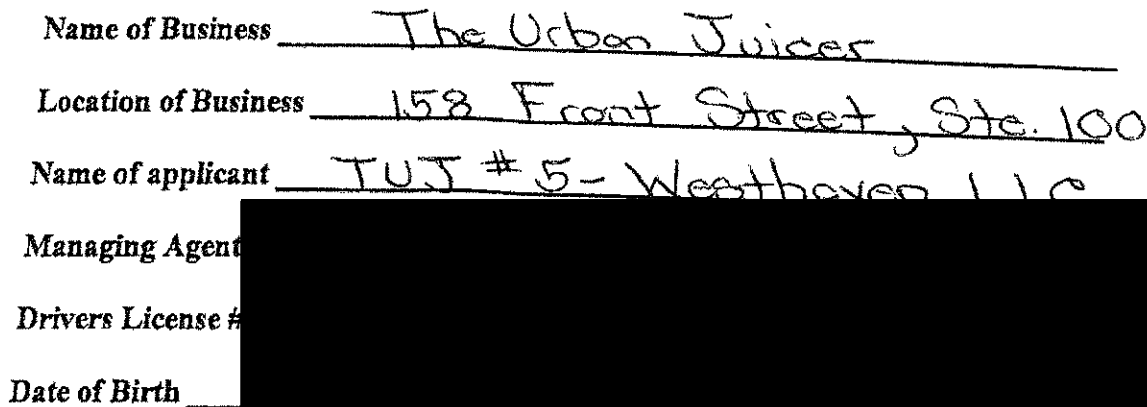 Name of Business The Urban Juicer
Location of Business 158 Front Street, Ste. 100
Name of applicant TUJ #5 - Westhaven LLC
Managing Agent
Drivers License #
Date of Birth